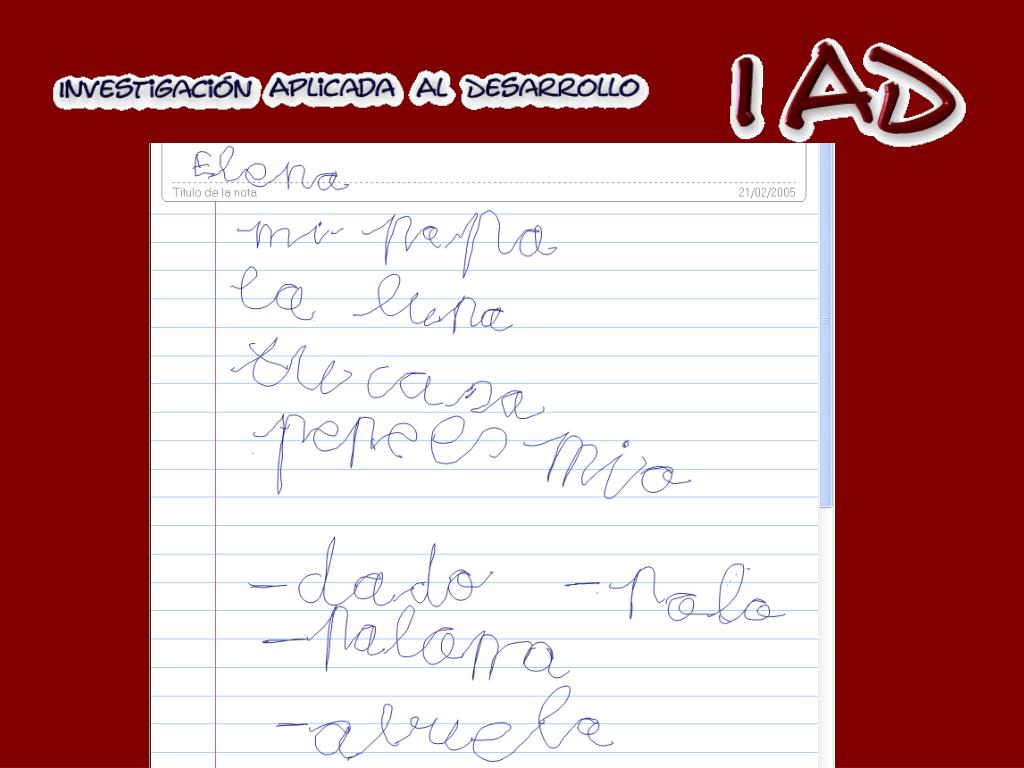 INVESTIGACIÓN APLICADA AL DESARROLLO
IAD
Elena
Título de la nota 21/02/2005
mi papa
la luna
tu casa
pepe es mio
-dado -palo
-paloma
-abuela